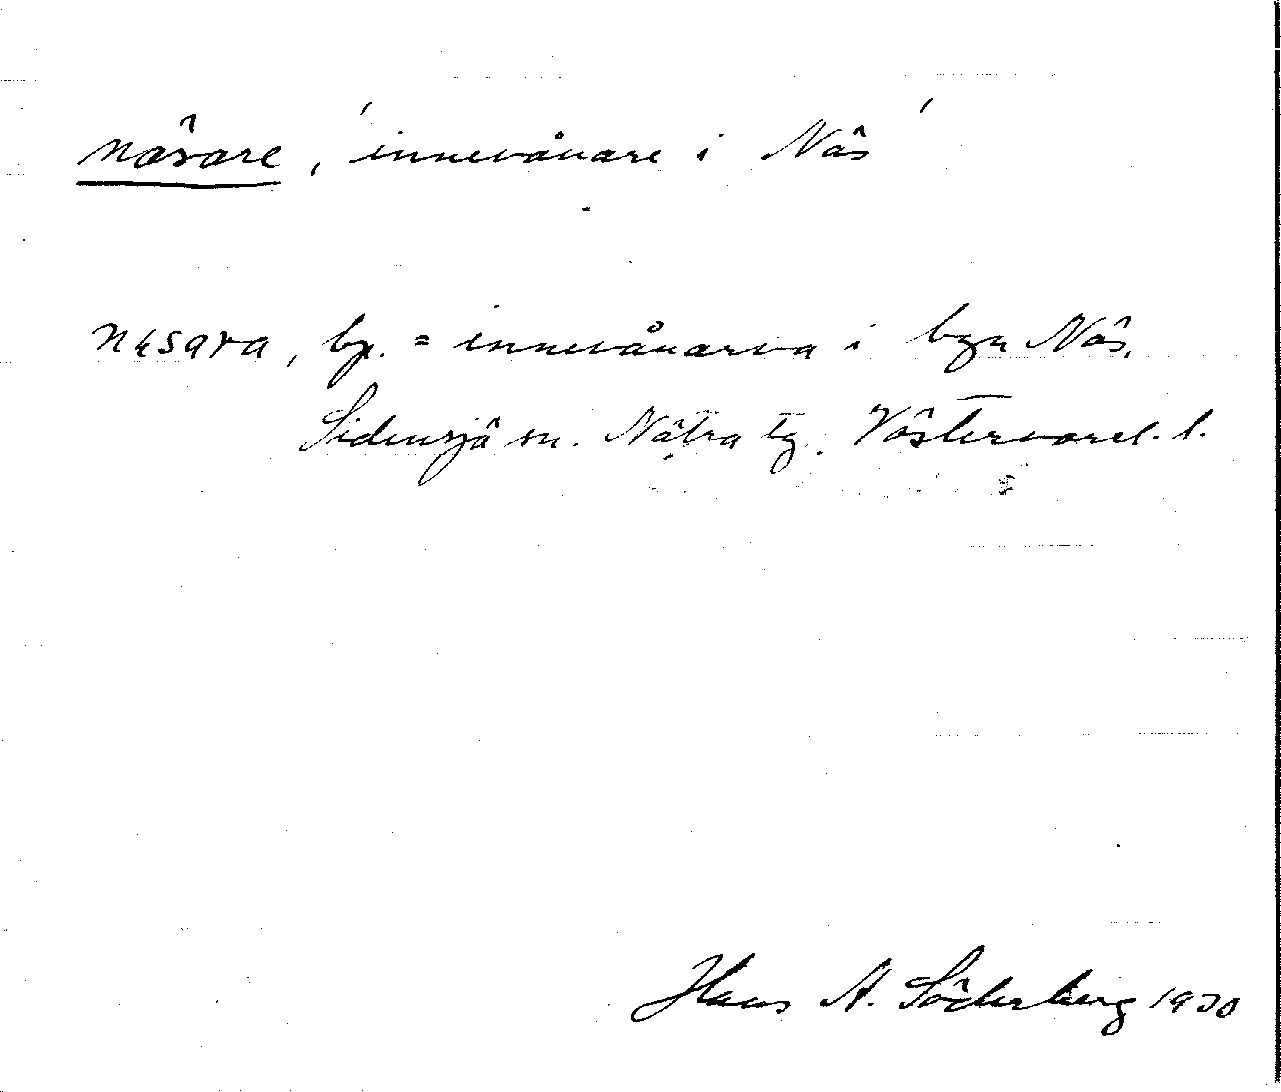 näsare, 'innevånare i Näs'
näsara, bp. = innevånarna i byn Näs,
Sidensjö sn. Nätra tg. Västernorrl. l.
Hans A. Söderberg 1930